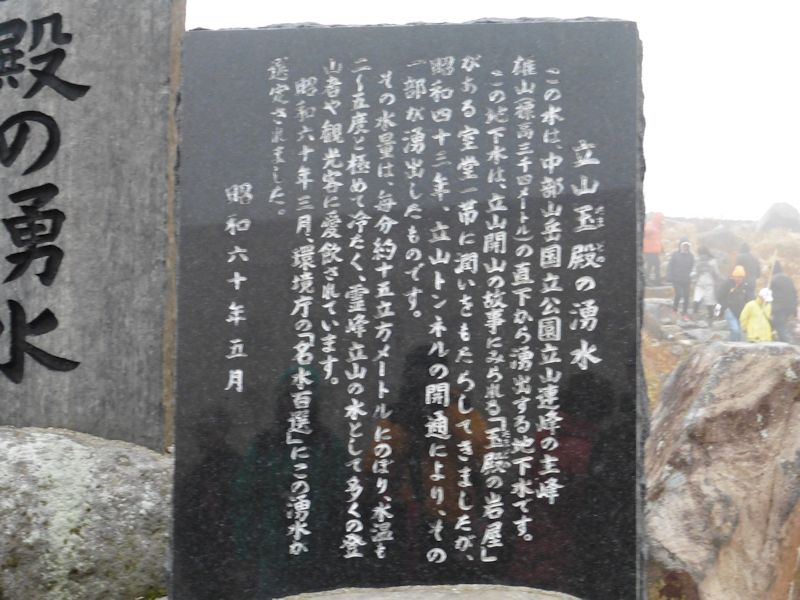 立山玉殿の湧水
たま どの
この水は、中部山岳国立公園立山連峰の主峰
雄山(標高三千四メートル)の直下から湧出する地下水です。
この地下水は、立山開山の故事にみられる「玉殿の岩屋」
がある室堂一帯に潤いをもたらしてきましたが、
昭和四十三年、立山トンネルの開通により、その
一部が湧出したものです。
その水量は、毎分約十五立方メートルにのぼり、水温も
二〜五度と極めて冷たく、霊峰立山の水として多くの登
山者や観光客に愛飲されています。
昭和六十年三月、環境庁の「名水百選」にこの湧水が
選定されました。
昭和六十年五月
殿の湧水